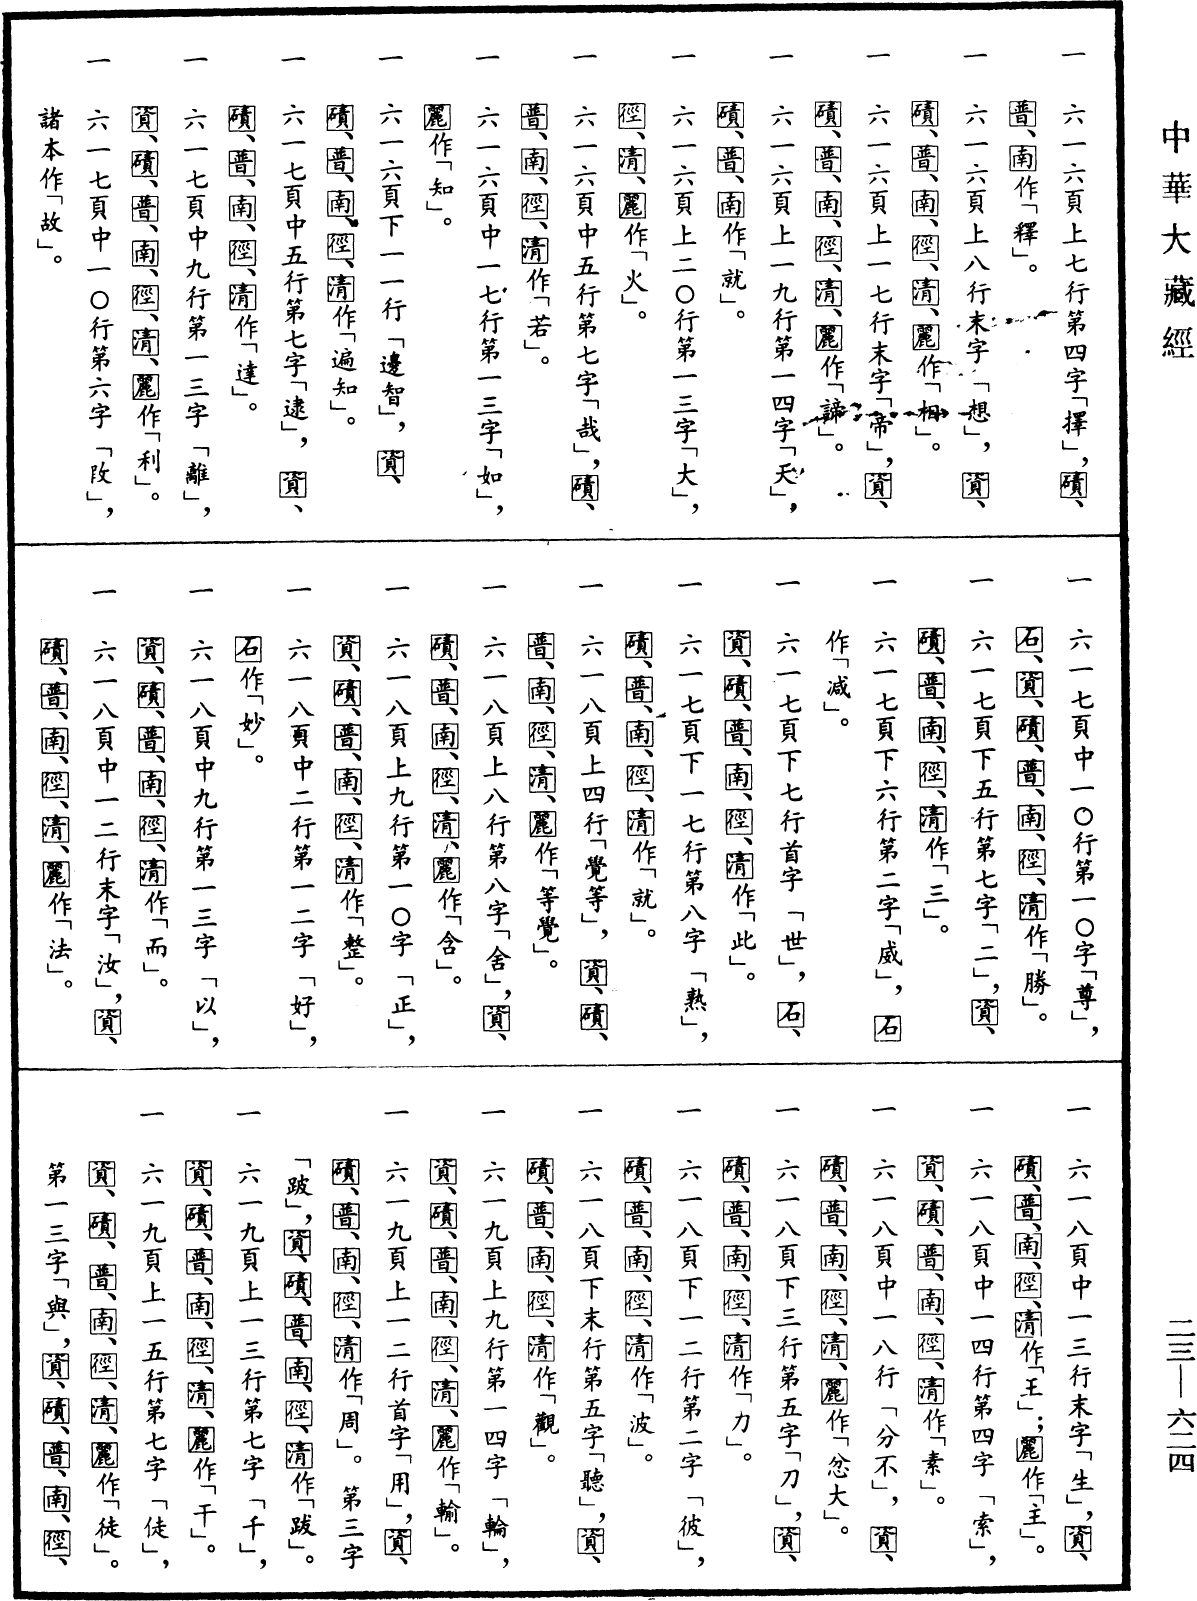 中華大藏經
一　六一六頁上七行第四字「擇」，磧、
普、南作「釋」。
一　六一六頁上八行末字「想」，資、
磧、普、南、徑、清、麗作「相」。
一　六一六頁上一七行末字「帝」，資、
磧、普、南、徑、清、麗作「諦」。
一　六一六頁上一九行第一四字「天」，
磧、普、南作「就」。
一　六一六頁上二〇行第一三字「大」，
徑、清、麗作「火」。
一　六一六頁中五行第七字「哉」，磧、
普、南、徑、清作「若」。
一　六一六頁中一七行第一三字「如」，
麗作「知」。
一　六一六頁下一一行「邊智」，資、
磧、普、南、徑、清作「遍知」。
一　六一七頁中五行第七字「逮」，資、
磧、普、南、徑、清作「達」。
一　六一七頁中九行第一三字「離」，
資、磧、普、南、徑、清、麗作「利」。
一　六一七頁中一〇行第六字「攺」，
諸本作「故」。
一　六一七頁中一〇行第一〇字「尊」，
石、資、磧、普、南、徑、清作「勝」。
一　六一七頁下五行第七字「二」，資、
磧、普、南、徑、清作「三」。
一　六一七頁下六行第二字「威」，石
作「減」。
一　六一七頁下七行首字「世」，石、
資、磧、普、南、徑、清作「此」。
一　六一七頁下一七行第八字「熟」，
磧、普、南、徑、清作「就」。
一　六一八頁上四行「覺等」，資、磧、
普、南、徑、清、麗作「等覺」。
一　六一八頁上八行第八字「舍」，資、
磧、普、南、徑、清、麗作「含」。
一　六一八頁上九行第一〇字「正」，
資、磧、普、南、徑、清作「整」。
一　六一八頁中二行第一二字「好」，
石作「妙」。
一　六一八頁中九行第一三字「以」，
資、磧、普、南、徑、清作「而」。
一　六一八頁中一二行末字「汝」，資、
磧、普、南、徑、清、麗作「法」。
一　六一八頁中一三行末字「生」，資、
磧、普、南、徑、清作「王」；麗作「主」。
一　六一八頁中一四行第四字「索」，
資、磧、普、南、徑、清作「素」。
一　六一八頁中一八行「分不」，資、
磧、普、南、徑、清、麗作「忿大」。
一　六一八頁下三行第五字「刀」，資、
磧、普、南、徑、清作「力」。
一　六一八頁下一二行第二字「彼」，
磧、普、南、徑、清作「波」。
一　六一八頁下末行第五字「聽」，資、
磧、普、南、徑、清作「觀」。
一　六一九頁上九行第一四字「輪」，
資、磧、普、南、徑、清、麗作「輸」。
一　六一九頁上一二行首字「用」，資、
磧、普、南、徑、清作「周」。第三字
「跛」，資、磧、普、南、徑、清作「跋」。
一　六一九頁上一三行第七字「千」，
資、磧、普、南、徑、清、麗作「干」。
一　六一九頁上一五行第七字「徒」，
資、磧、普、南、徑、清、麗作「徒」。
第一三字「與」，資、磧、普、南、徑、
二三—六二四